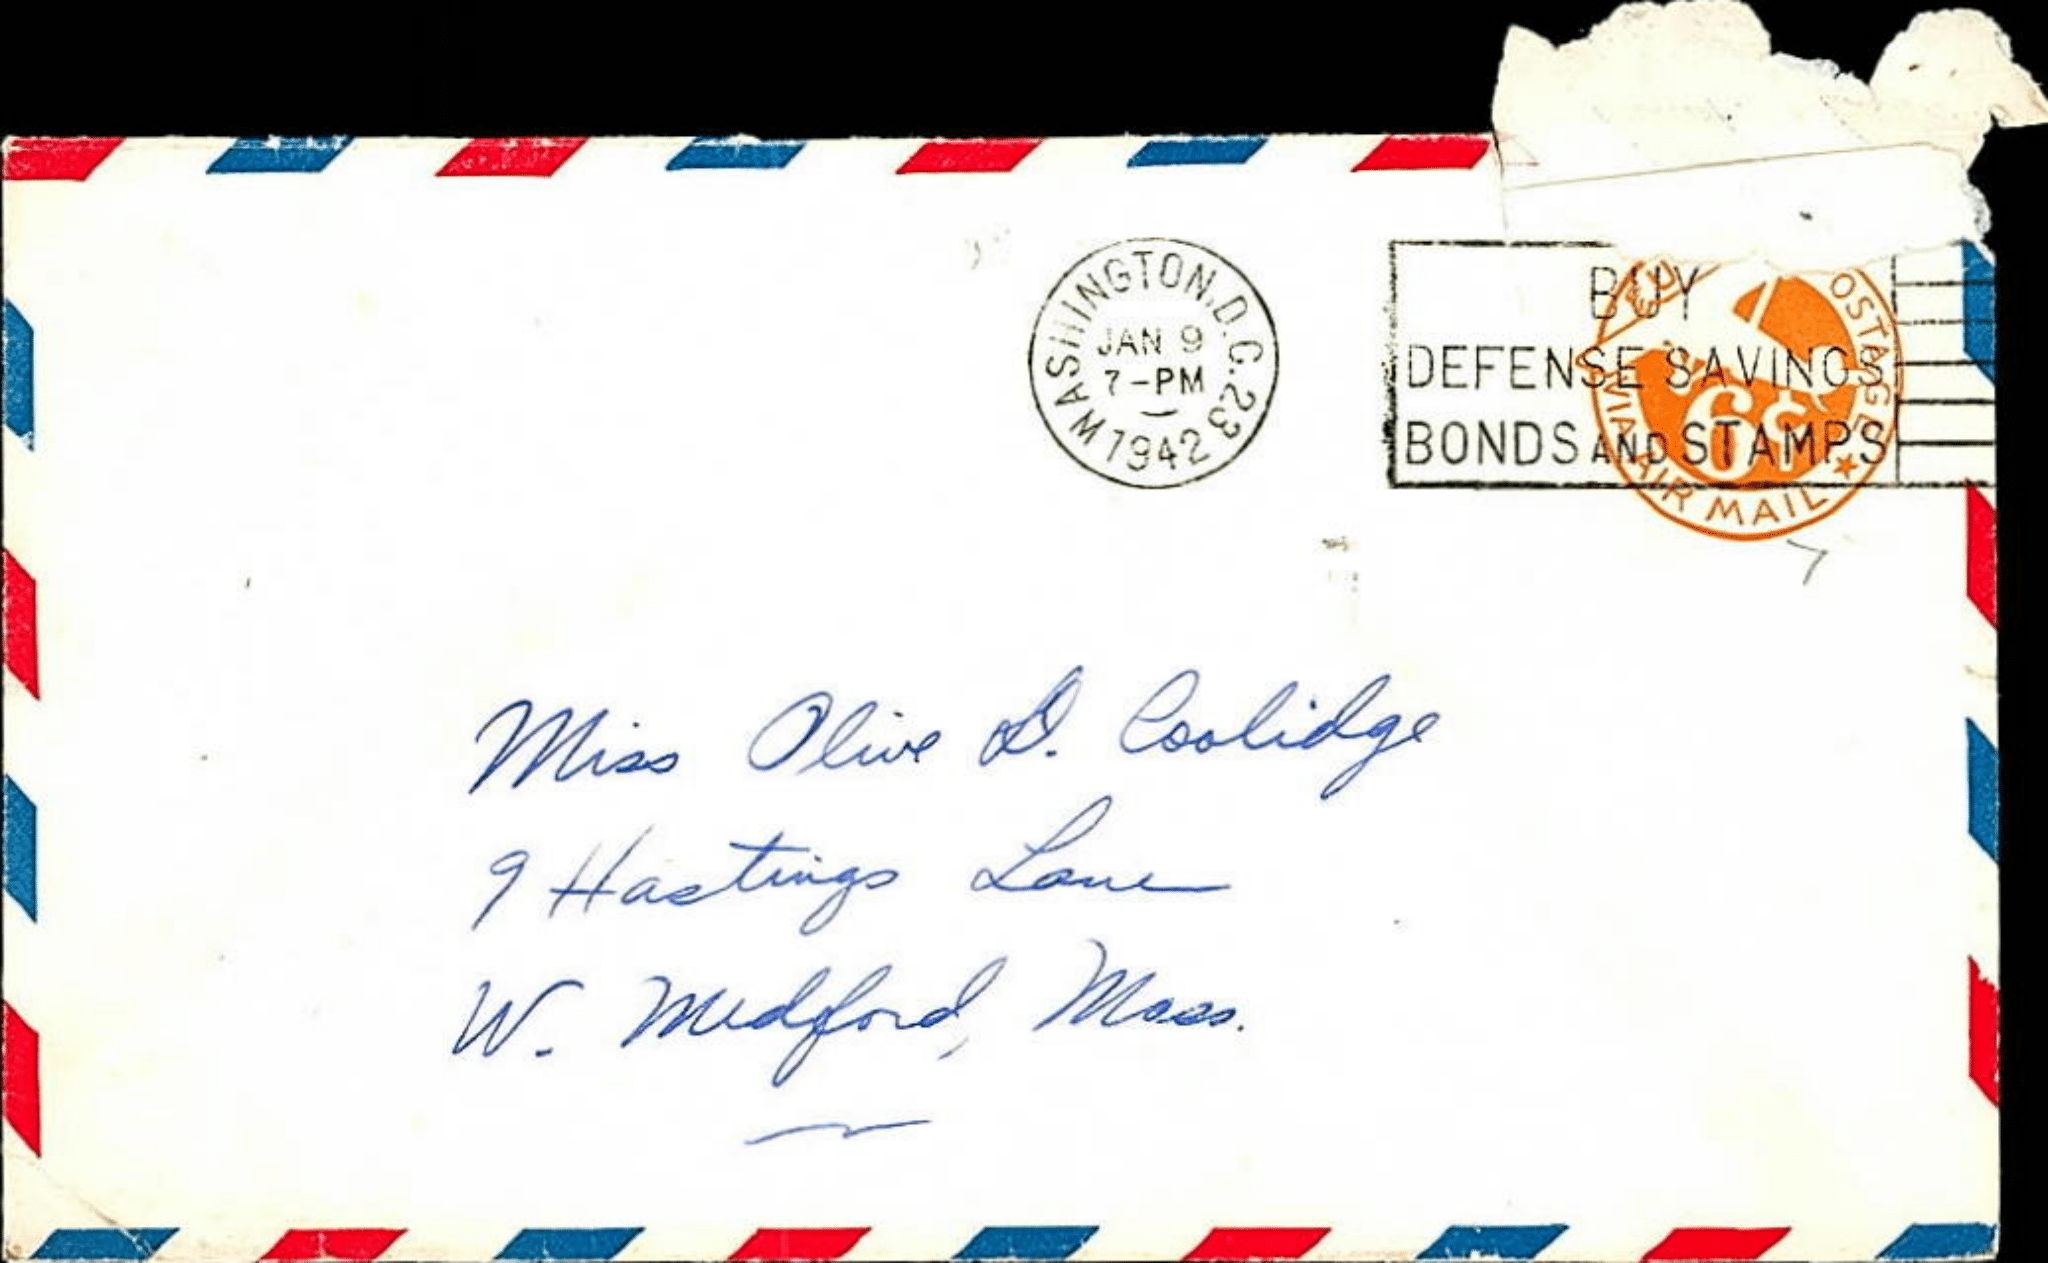 WASHINGTON, D.C. 23
JAN 9
7-PM
1942
BUY
DEFENSE SAVINGS
BONDS AND STAMPS
OSTAGE
6¢
VIA AIR MAIL
Miss Olive D. Coolidge
9 Hastings Lane
W. Medford, Mass.